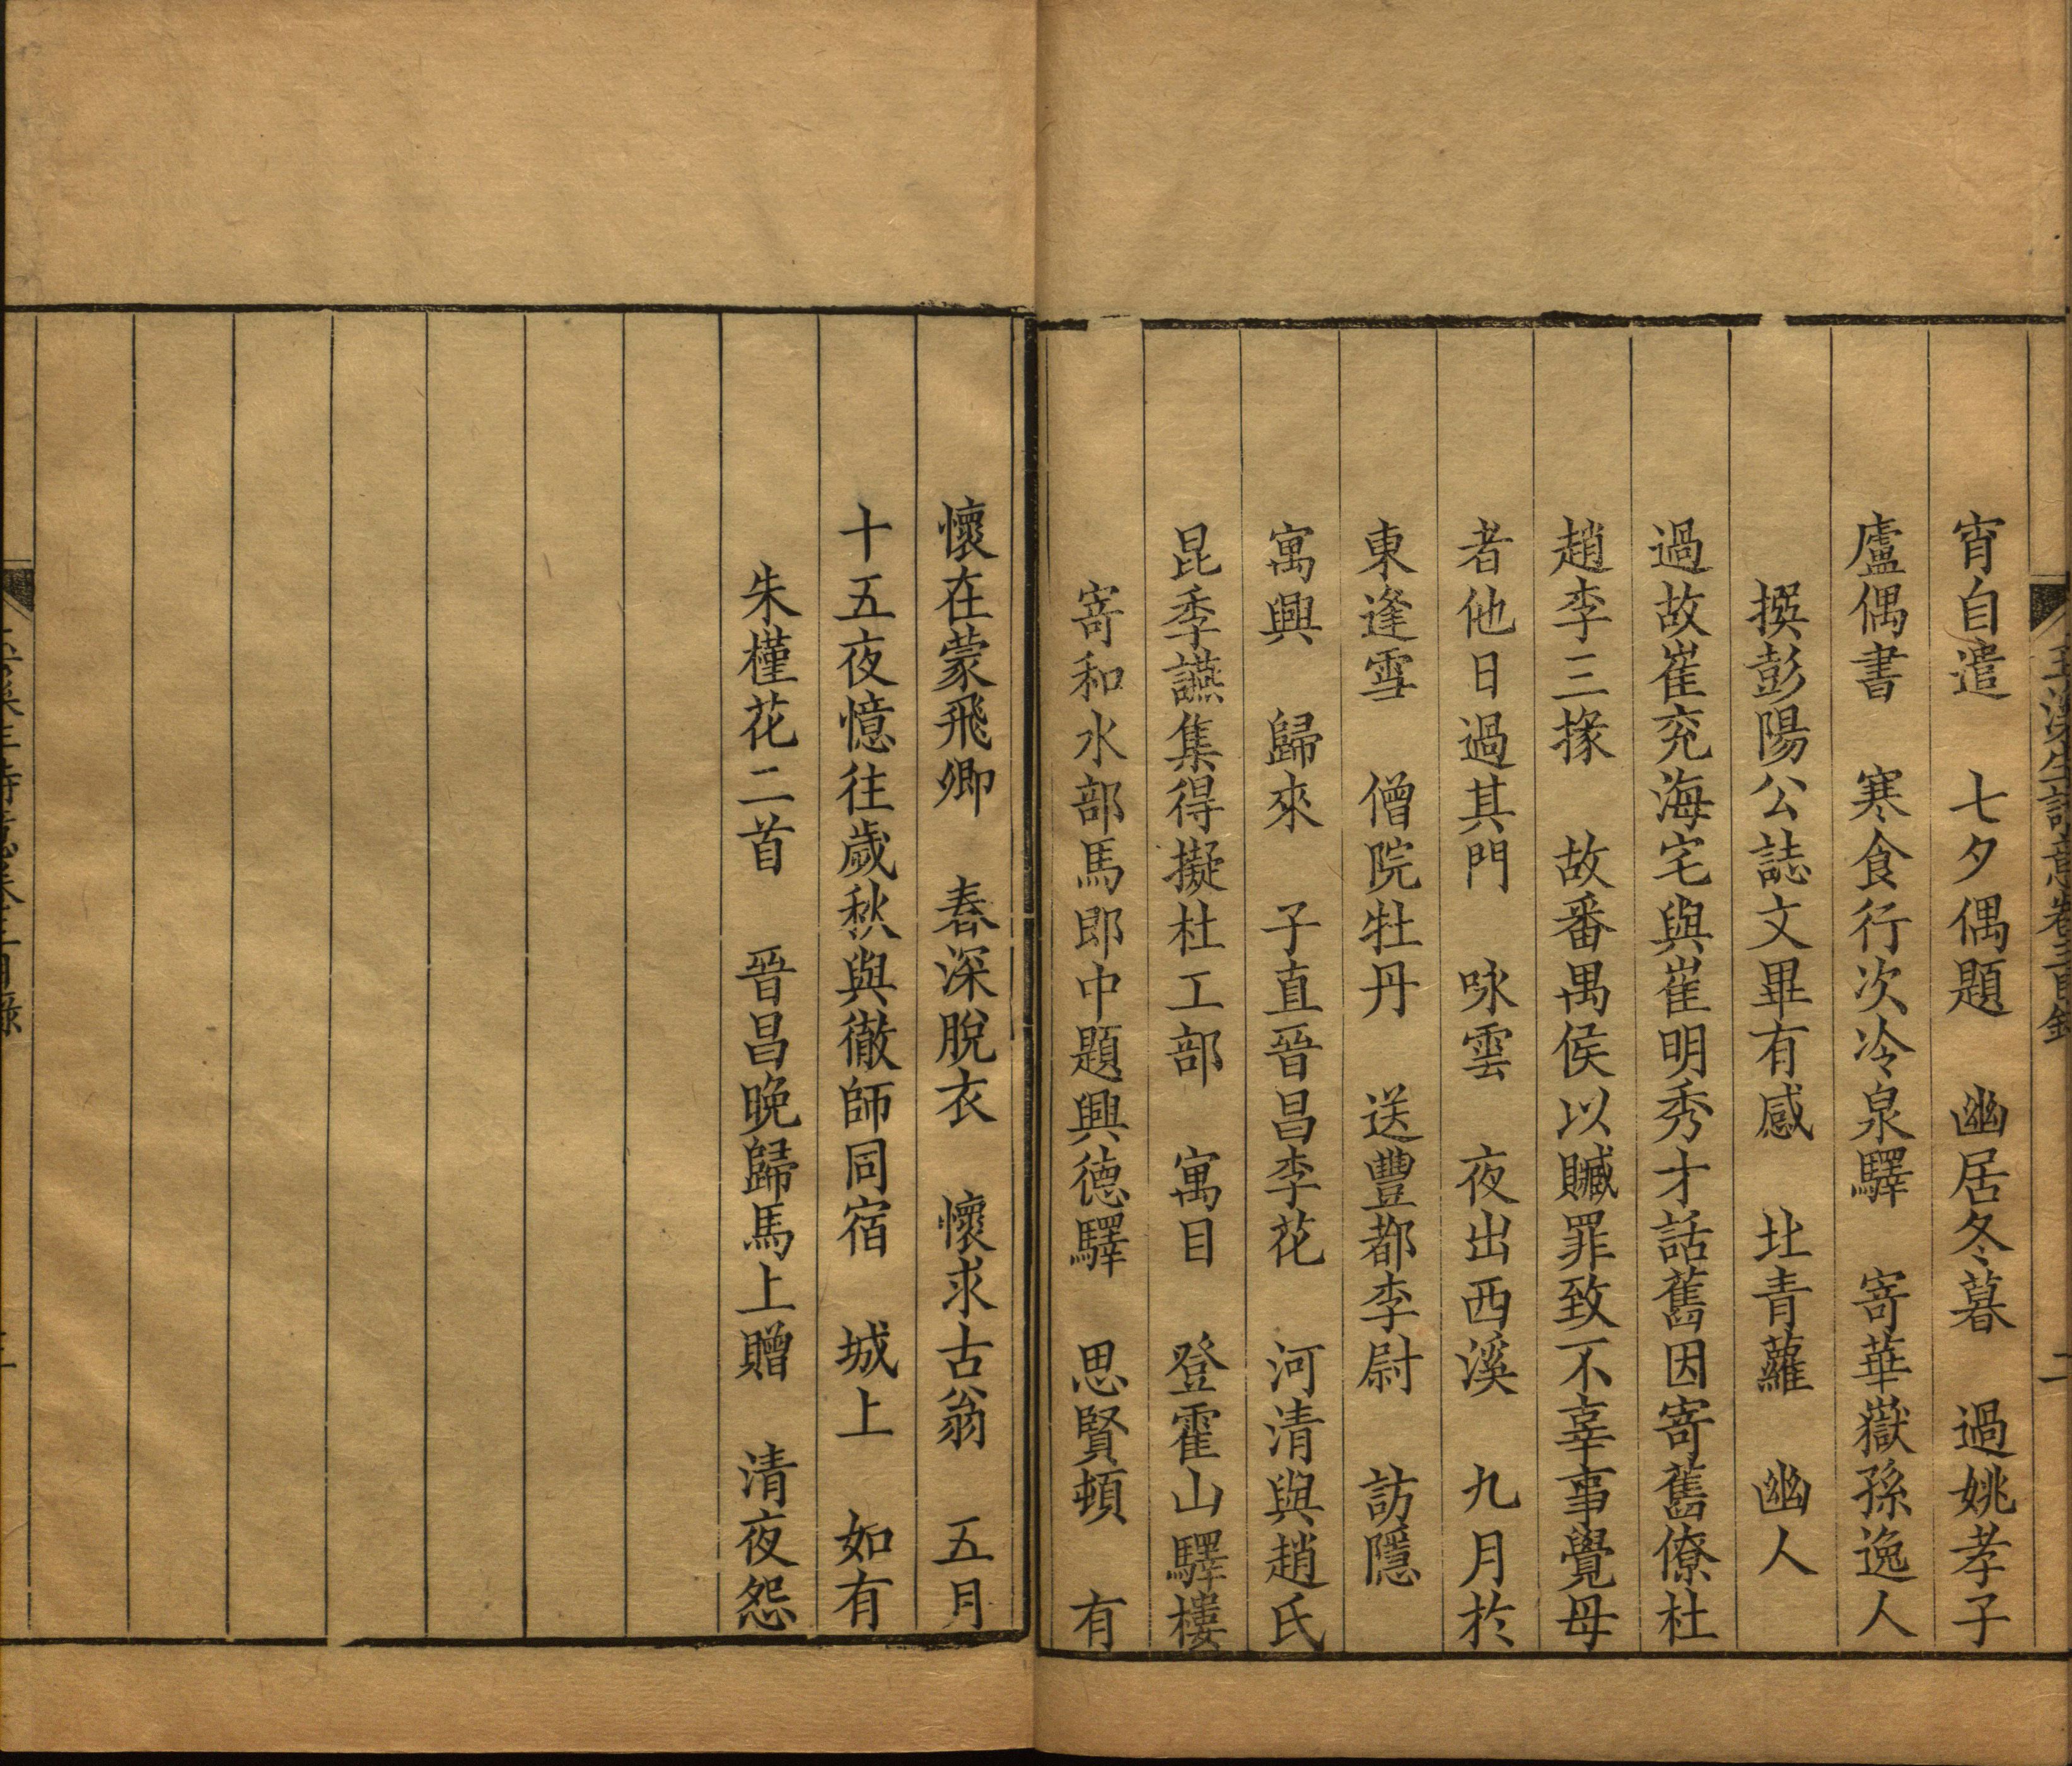 宵自遣　七夕偶題　幽居冬暮　過姚孝子
廬偶書　寒食行次冷泉驛　寄華嶽孫逸人
撰彭陽公誌文畢有感　北青蘿　幽人
過故崔兖海宅與崔明秀才話舊因寄舊僚杜
趙李三掾　故番禺侯以贓罪致不辜事覺母
者他日過其門　咏雲　夜出西溪　九月於
東逢雪　僧院牡丹　送豐都李尉　訪隱
寓興　歸來　子直晉昌李花　河清與趙氏
昆季讌集得擬杜工部　寓目　登霍山驛樓
寄和水部馬郎中題興德驛　思賢頓　有
懷在蒙飛卿　春深脫衣　懷求古翁　五月
十五夜憶往歲秋與徹師同宿　城上　如有
朱槿花二首　晉昌晚歸馬上贈　清夜怨